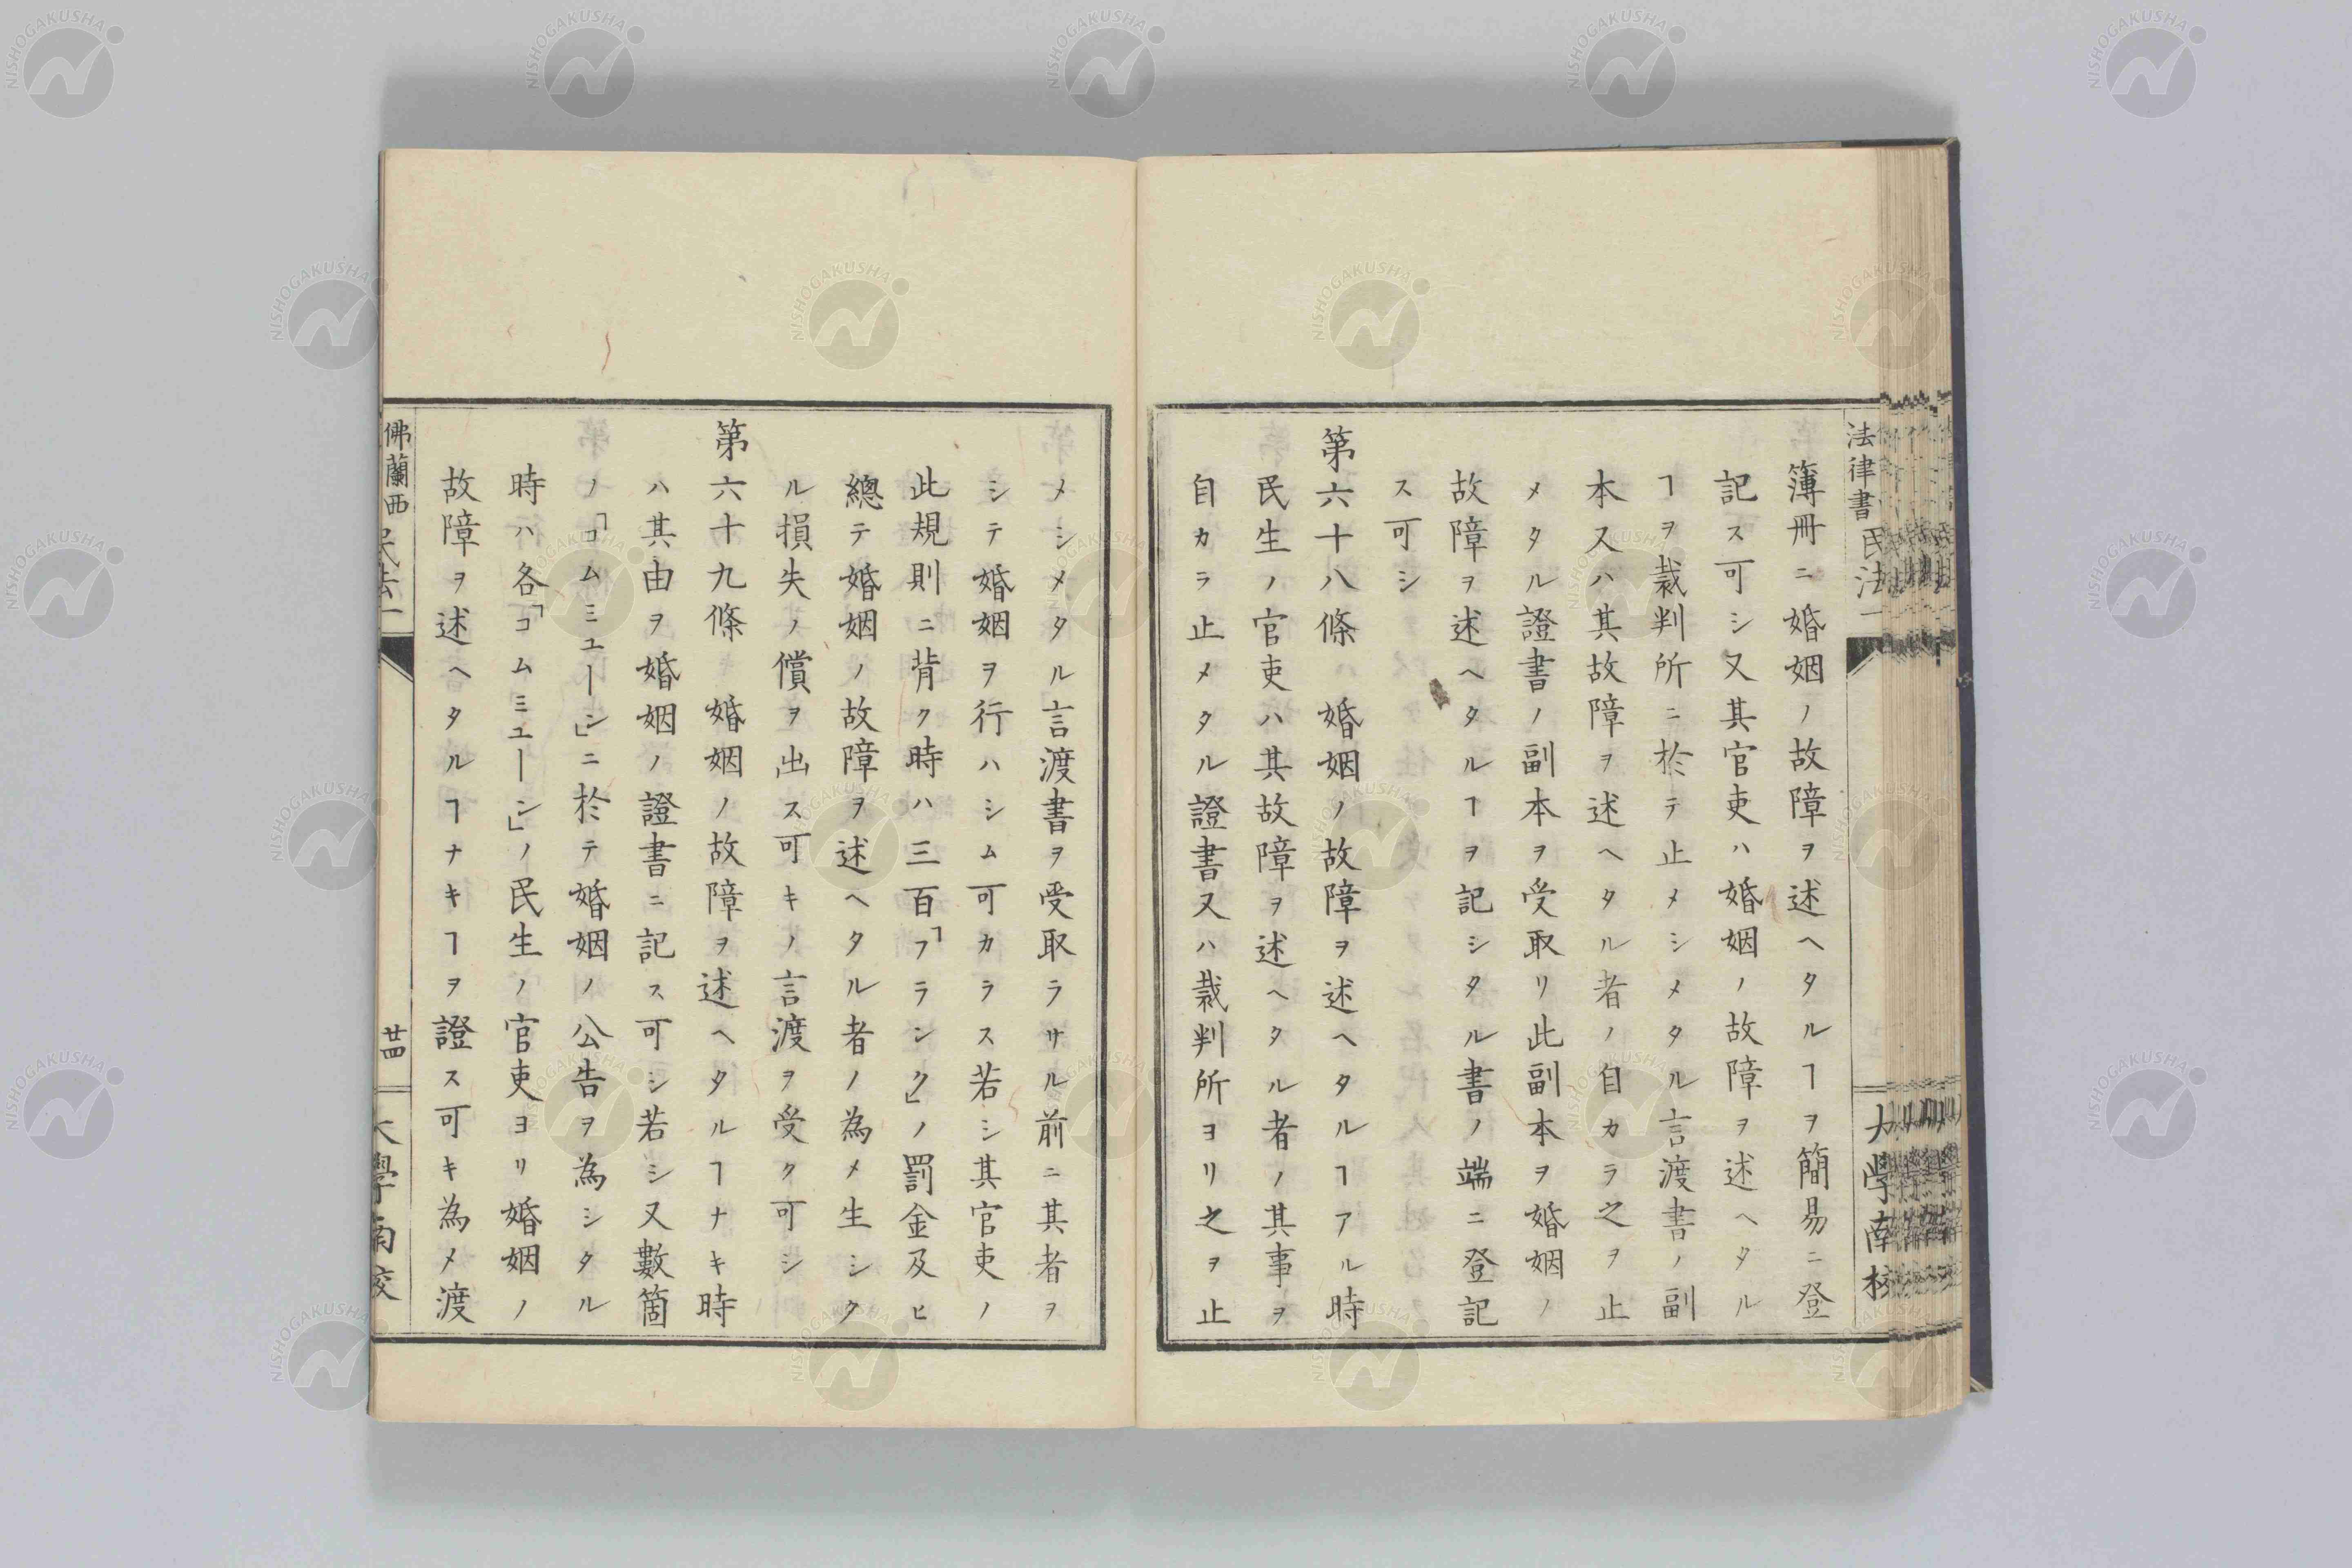 法律書 民法一
大學南校
簿冊ニ婚姻ノ故障ヲ述ヘタルヿヲ簡易ニ登
記ス可シ又其官吏ハ婚姻ノ故障ヲ述ヘタル
ヿヲ裁判所ニ於テ止メシメタル言渡書ノ副
本又ハ其故障ヲ述ヘタル者ノ自カラ之ヲ止
メタル證書ノ副本ヲ受取リ此副本ヲ婚姻ノ
故障ヲ述ヘタルヿヲ記シタル書ノ端ニ登記
ス可シ
第六十八條 婚姻ノ故障ヲ述ヘタルヿアル時
民生ノ官吏ハ其故障ヲ述ヘタル者ノ其事ヲ
自カラ止メタル證書又ハ裁判所ヨリ之ヲ止
メシメタル言渡書ヲ受取ラサル前ニ其者ヲ
シテ婚姻ヲ行ハシム可カラス若シ其官吏ノ
此規則ニ背ク時ハ三百「フランク」ノ罰金及ヒ
總テ婚姻ノ故障ヲ述ヘタル者ノ為メ生シタ
ル損失ノ償ヲ出ス可キノ言渡ヲ受ク可シ
第六十九條 婚姻ノ故障ヲ述ヘタルヿナキ時
ハ其由ヲ婚姻ノ證書ニ記ス可シ若シ又數箇
ノ「コムミユーン」ニ於テ婚姻ノ公告ヲ為シタル
時ハ各「コムミユーン」ノ民生ノ官吏ヨリ婚姻ノ
故障ヲ述ヘタルヿナキヿヲ證ス可キ為メ渡
佛蘭西 民法一
廿四
大學南校
NISHOGAKUSHA